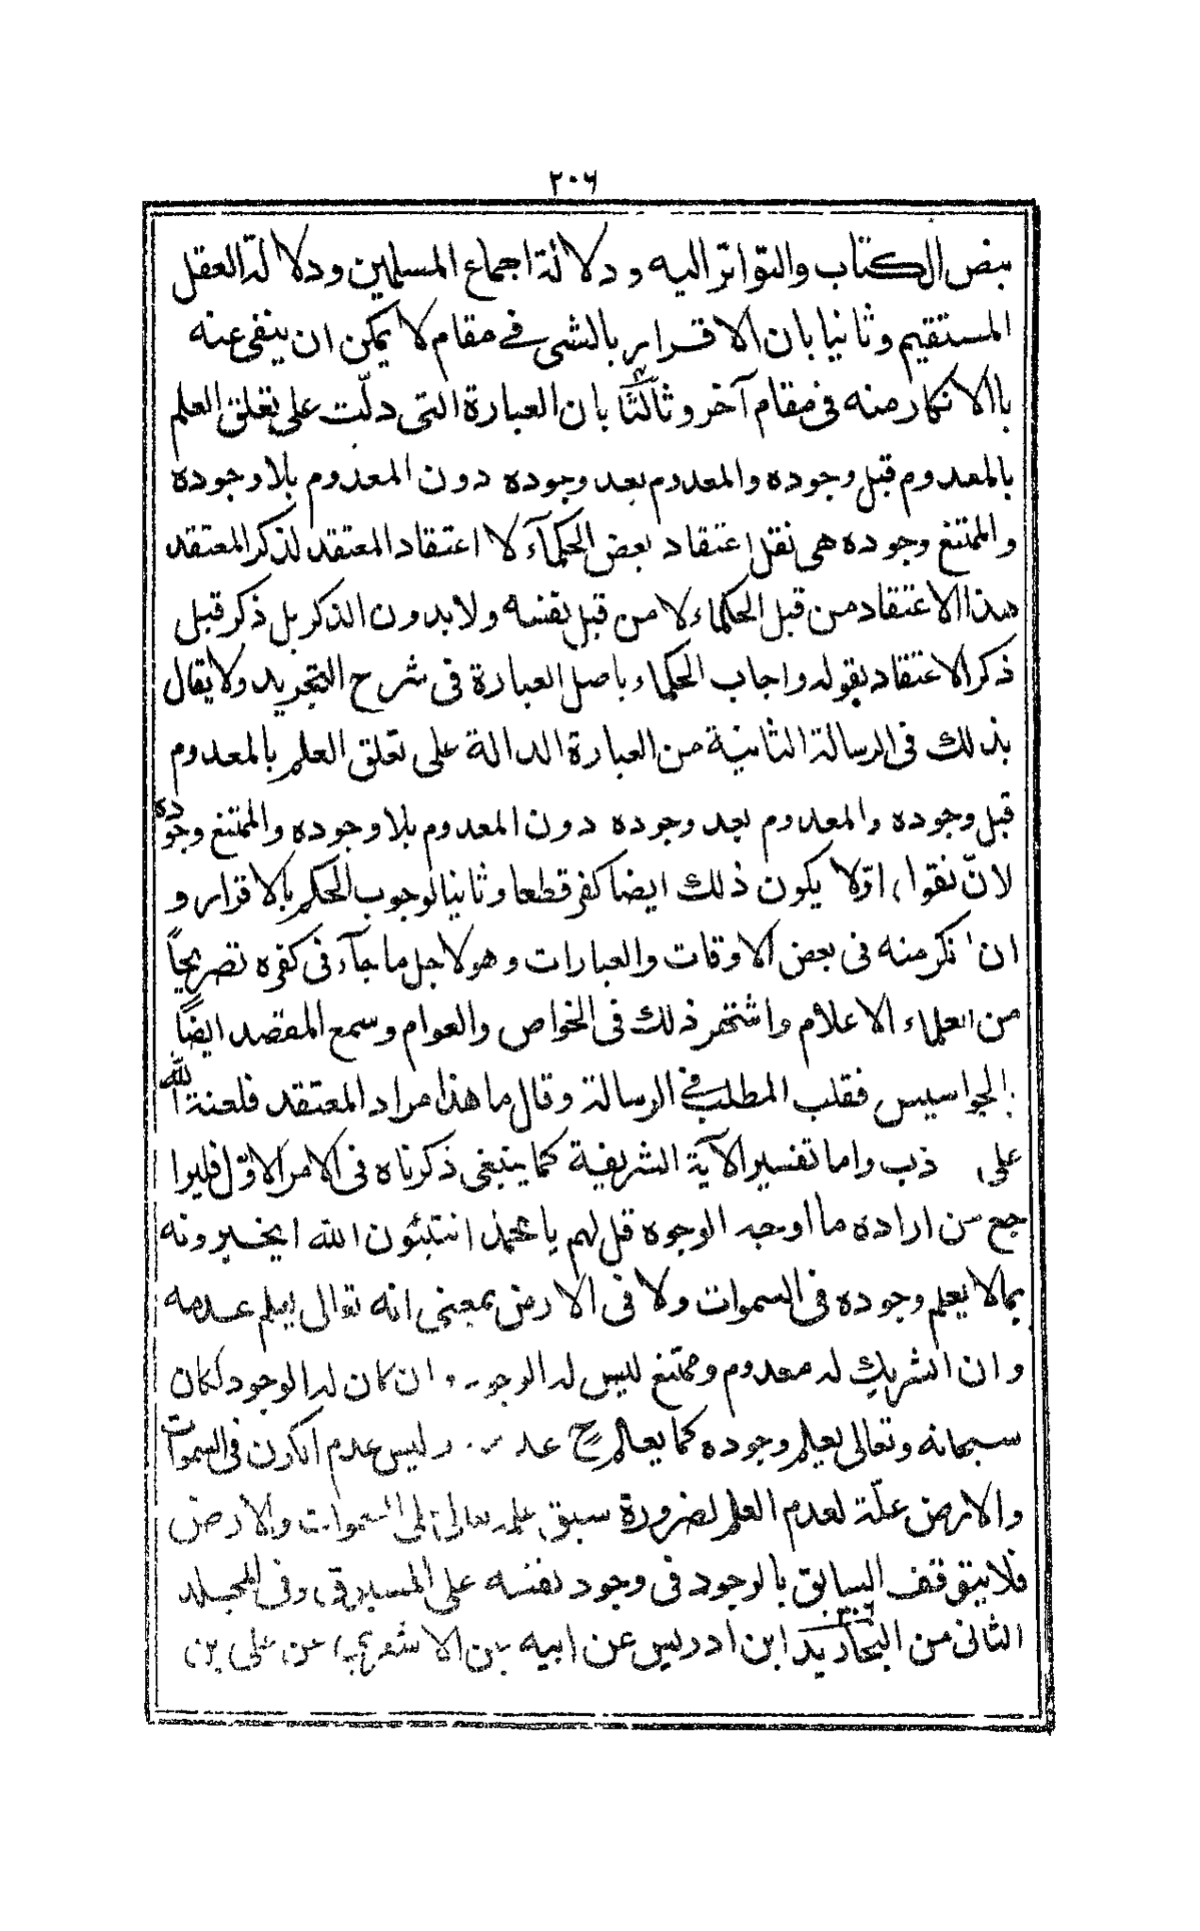 ٢٠٦
بنص الكتاب والتواتر اليه ودلالة اجماع المسلمين ودلالة العقل
المستقيم وثانيا بان الاقرار بالشئ في مقام لا يمكن ان ينفى عنه
باالانكار منه فى مقام آخر وثالثا بان العبارة التى دلّت على تعلق العلم
بالمعدوم قبل وجوده والمعدوم بعد وجوده دون المعدوم بلا وجوده
والممتنع وجوده هى نقل اعتقاد بعض الحكمآء لا اعتقاد المعتقد لذكر المعتقد
هذا الاعتقاد من قبل الحكماء لا من قبل نفسه ولا بدون الذكر بل ذكر قبل
ذكر الاعتقاد بقوله واجاب الحكماء باصل العبارة فى شرح التجريد ولا يقال
بذلك فى الرسالة الثانية من العبارة الدالة على تعلق العلم بالمعدوم
قبل وجوده والمعدوم بعد وجوده دون المعدوم بلا وجوده والممتنع وجوده
لانّ نقول اوّلا يكون ذلك ايضا كفر قطعا وثانيا لوجوب الحكم بالاقرار و
ان انكر منه فى بعض الاوقات والعبارات وهو لاجل ما جآء فى كفره تصريحاً
من العلماء الاعلام واشتهر ذلك فى الخواص والعوام وسمع المقصد ايضاً
بالجواسيس فقلب المطلب فى الرسالة وقال ما هذا مراد المعتقد فلعنة الله
على ذب واما تفسير الآية الشريفة كما ينبغى ذكرناه فى الامر الاوّل فليرا
جع من اراده ما اوجه الوجوه قل لهم يا محمّد اتنبئون الله ايخبرونه
بمالا يعلم وجوده فى السموات ولا فى الارض بمعنى انه تعالى يعلم عدمه
وان الشريك له معدوم وممتنع ليس له الوجود وان كان له الوجود لكان
سبحانه وتعالى يعلم وجوده كما يعلم ح وليس عدم الكون فى السموات
والارض علّة لعدم العلم لضرورة سبق علمه تعالى على السموات والارض
فلا يتوقف السابق بالوجود فى وجود نفسه على المسبوق وفى المجلد
الثانى من البحار يد ابن ادريس عن ابيه عن الاشعرى عن على بن